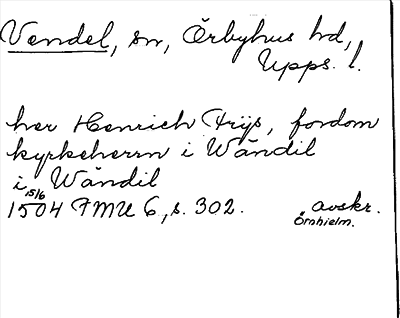 Vendel, sn, Örbyhus hd,
Upps. l.
her Henrich Frijs, fordom
kyrkeherrn i Wåndil
i Wåndil
15/6
1504 FMU 6, s. 302. avskr.
Örnhielm.